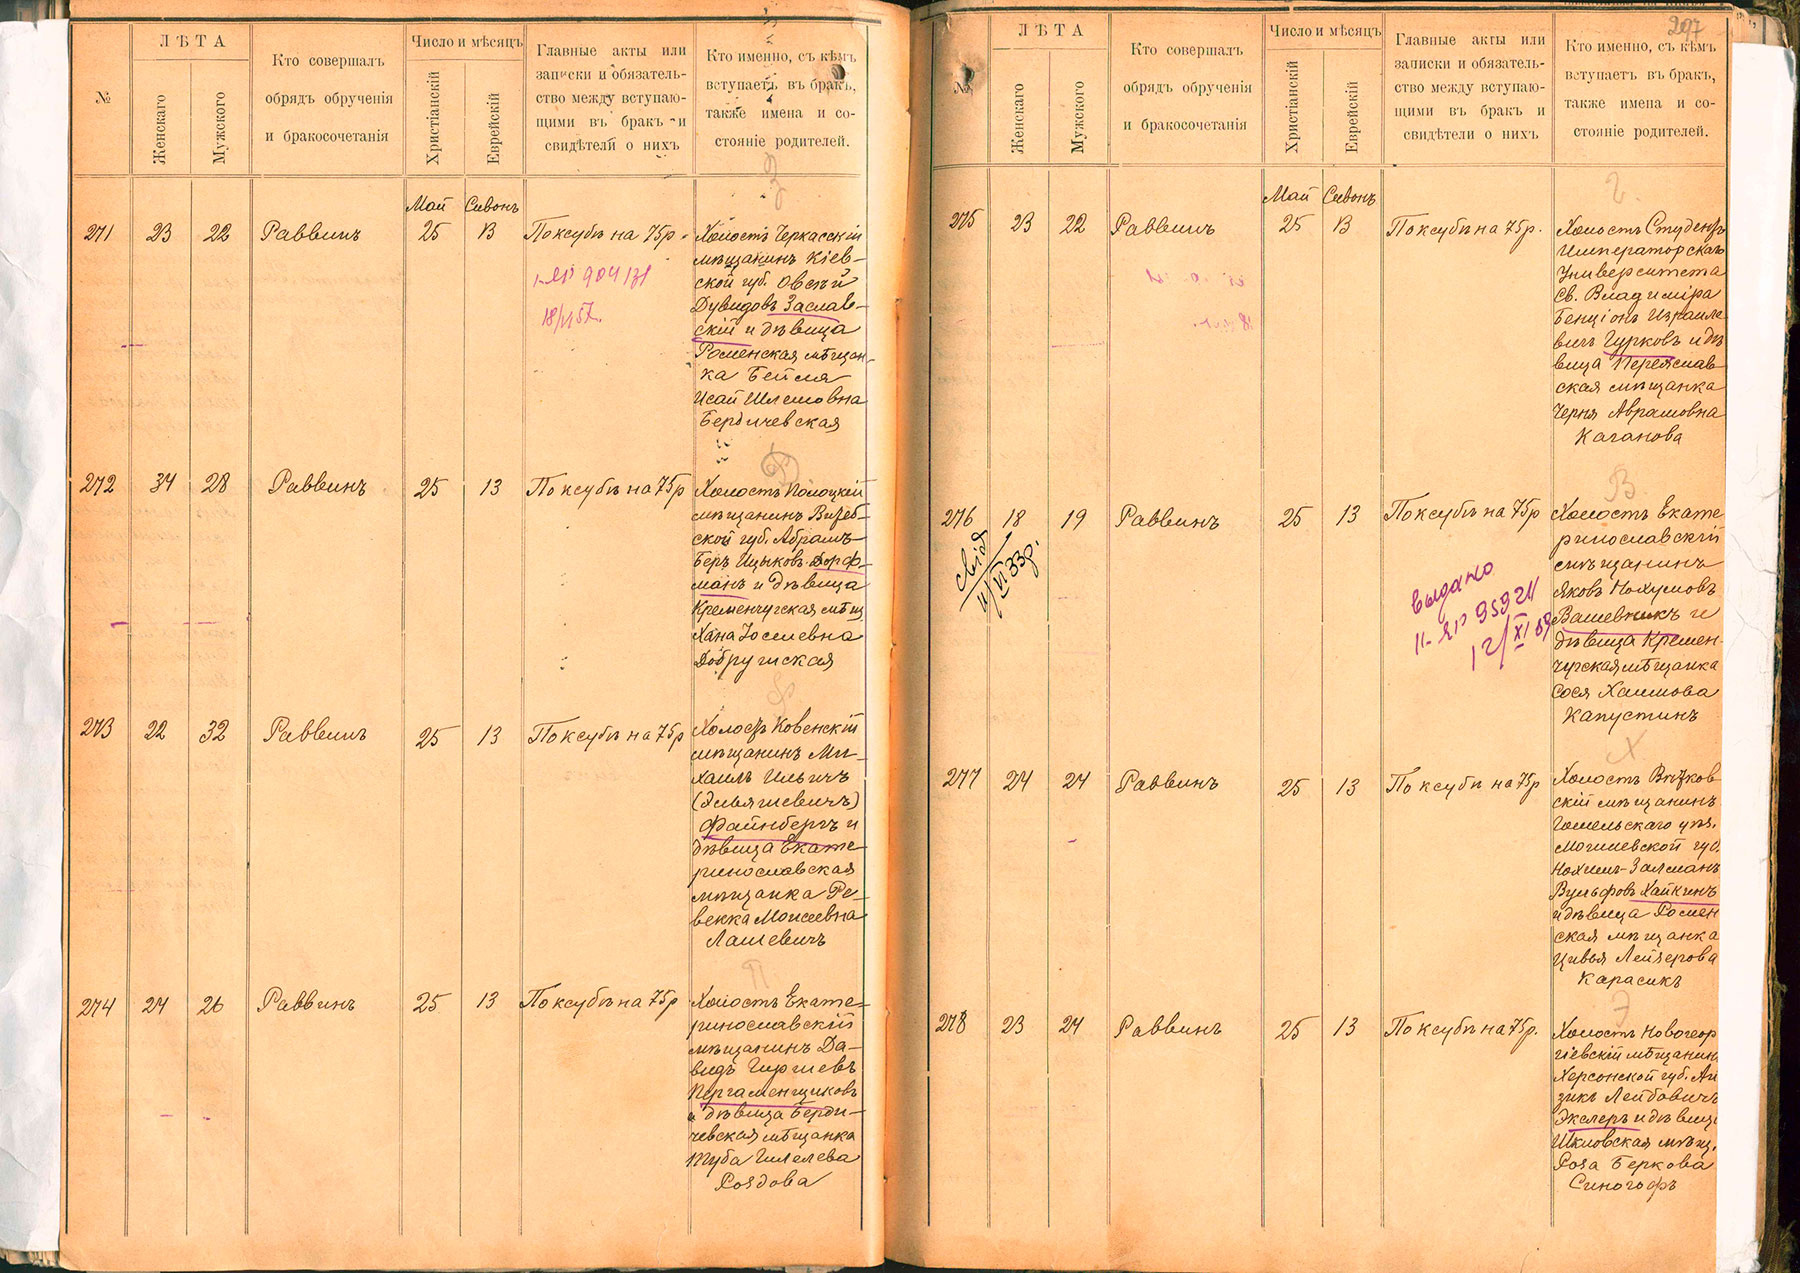 №
ЛѢТА
Женскаго
Мужского
Кто совершалъ
обрядъ обрученія
и бракосочетанія
Число и мѣсяцъ
Христіанскій
Еврейскій
Главные акты или
записки и обязатель-
ство между вступаю-
щими въ бракъ и
свидѣтели о нихъ
Кто именно, съ кѣмъ
вступаетъ въ бракъ,
также имена и со-
стояніе родителей.
Май Сивонъ
271 23 22 Раввинъ 25 13 По ксубѣ на 75 р.
Холостъ Черкасскій
мѣщанинъ Кіев-
ской губ. Овсѣй
Дувидовъ Заслав-
скій и дѣвица
Роменская мѣщан-
ка Бейла
Исай Шлемовна
Бердичевская
18/VI 57.
Ф
272 34 28 Раввинъ 25 13 По ксубѣ на 75 р
Холостъ Полоцкій
мѣщанинъ Витеб-
ской губ. Абрамъ-
Беръ Ицыковъ Дорф-
манъ и дѣвица
Кременчугская мѣщ.
Хана Іосиевна
Добрушская
273 22 32 Раввинъ 25 13 По ксубѣ на 75 р
Холостъ Ковенскій
мѣщанинъ Ми-
хаилъ Ильичъ
(Эльяшевичъ)
Файнбергъ и
дѣвица Екате-
ринославская
мѣщанка Ре-
векка Моисеевна
Лашевичъ
П
274 24 26 Раввинъ 25 13 По ксубѣ на 75 р
Холостъ Екате-
ринославскій
мѣщанинъ Да-
видъ Гиршевъ
Пергаменщиковъ
и дѣвица Берди-
чевская мѣщанка
Туба Гилелева
Роздова
297
№
ЛѢТА
Женскаго
Мужского
Кто совершалъ
обрядъ обрученія
и бракосочетанія
Число и мѣсяцъ
Христіанскій
Еврейскій
Главные акты или
записки и обязатель-
ство между вступаю-
щими въ бракъ и
свидѣтели о нихъ
Кто именно, съ кѣмъ
вступаетъ въ бракъ,
также имена и со-
стояніе родителей.
Май Сивонъ
Г
275 23 22 Раввинъ 25 13 По ксубѣ на 75 р.
Холостъ Студентъ
Императорскаго
Университета
Св. Владиміра
Бенціонъ Израиле
вичъ Гурковъ и дѣ
вица Переяслав
ская мѣщанка
Черня Аврамовна
Каганова
В
276 18 19 Раввинъ 25 13 По ксубѣ на 75 р
Холостъ Екате
ринославскій
мѣщанинъ
Яковъ Нохумовъ
Вашевникъ и
дѣвица Кремен-
чугская мѣщанка
Сося Хаимова
Капустинъ
11/VI 33р.
выдано
II-ЯР 959211
12/XI 69
Х
277 24 24 Раввинъ 25 13 По ксубѣ на 75 р
Холостъ Вѣтков
скій мѣщанинъ
Гомельскаго уѣз.
Могилевской губ.
Нохим-Залманъ
Вульфовъ Хайкинъ
и дѣвица Ромен
ская мѣщанка
Цивья Лейзерова
Карасикъ
Э
278 23 24 Раввинъ 25 13 По ксубѣ на 75 р.
Холостъ Новогеор
гіевскій мѣщанин
Херсонской губ. Ай
зикъ Лейбовичъ
Экслеръ и дѣвица
Шкловская мѣщ.
Роза Беркова
Синогофъ